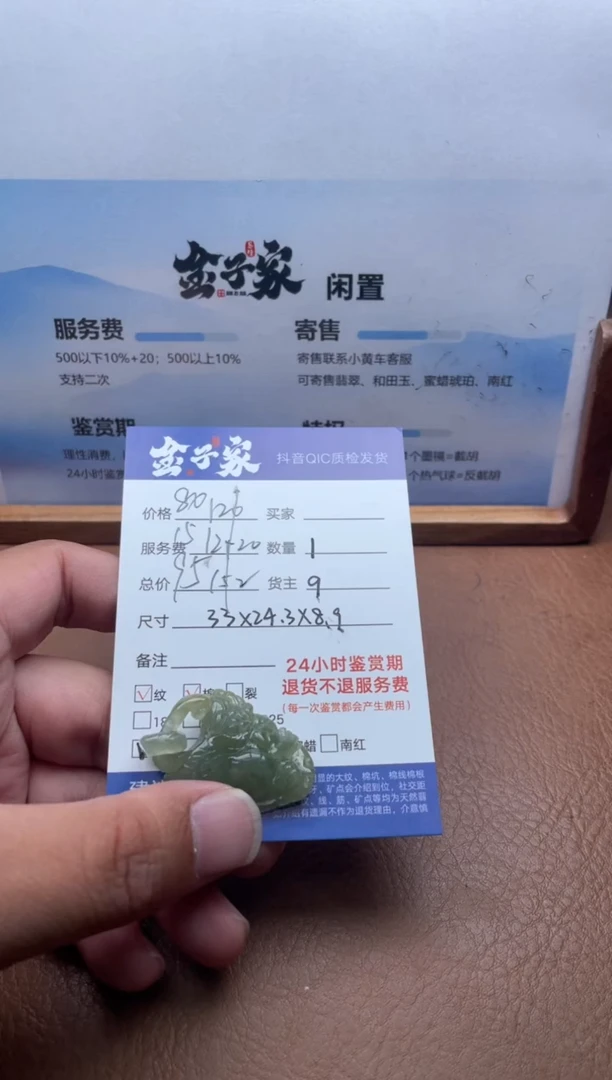 金子家 闲置
服务费
500以下10%+20；500以上10%
支持二次
寄售
寄售联系小黄车客服
可寄售翡翠、和田玉、蜜蜡琥珀、南红
鉴赏期
理性消费
24小时鉴赏
个墨镜=截胡
个热气球=反截胡
金子家 抖音QIC质检发货
价格 买家
服务费 数量 1
总价 货主 9
尺寸 33X24.3X8.9
备注
24小时鉴赏期
退货不退服务费
(每一次鉴赏都会产生费用)
纹 裂
18 25
蜡 南红
显的大纹、棉坑、棉线棉根
矿点会介绍到位，社交距
线、筋、矿点等均为天然翡
有遗漏不作为退货理由，介意慎